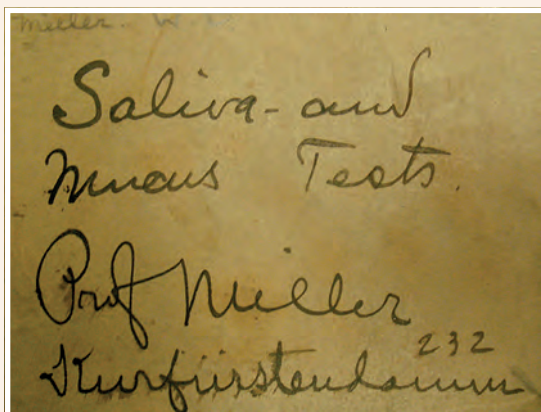 Miller. W.
Saliva-and
Mucus Tests.
Prof Miller
232
Kurfürstendamm